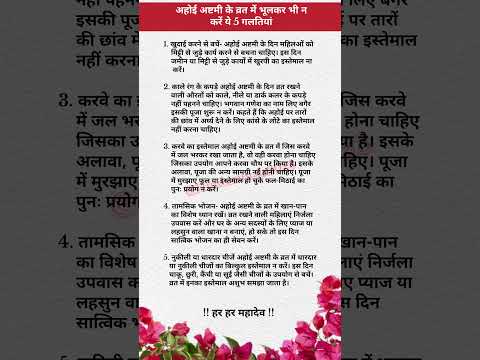 अहोई अष्टमी के व्रत में भूलकर भी न
करें ये 5 गलतियां
1. खुदाई करने से बचें- अहोई अष्टमी के दिन महिलाओं को
मिट्टी से जुड़े कार्य करने से बचना चाहिए। इस दिन
जमीन या मिट्टी से जुड़े कार्यों में खुरपी का इस्तेमाल ना
करें।
2. काले रंग के कपड़े अहोई अष्टमी के दिन व्रत रखने
वाली औरतों को काले, नीले या डार्क कलर के कपड़े
नहीं पहनने चाहिए। भगवान गणेश का नाम लिए बगैर
इसकी पूजा शुरू न करें। कहते हैं कि अहोई पर तारों
की छांव में अर्घ्य देने के लिए कांसे के लोटे का इस्तेमाल
नहीं करना चाहिए।
3. करवे का इस्तेमाल अहोई अष्टमी के व्रत में जिस करवे
में जल भरकर रखा जाता है, वो वही करवा होना चाहिए
जिसका उपयोग आपने करवा चौथ पर किया है। इसके
अलावा, पूजा की अन्य सामग्री नई होनी चाहिए। पूजा
में मुरझाए फूल या इस्तेमाल हो चुके फल-मिठाई का
पुनः प्रयोग न करें।
4. तामसिक भोजन- अहोई अष्टमी के व्रत में खान-पान
का विशेष ध्यान रखें। व्रत रखने वाली महिलाएं निर्जला
उपवास करें और घर के अन्य सदस्यों के लिए प्याज या
लहसुन वाला खाना न बनाएं, हो सके तो इस दिन
सात्विक भोजन का ही सेवन करें।
5. नुकीली या धारदार चीजें अहोई अष्टमी के व्रत में धारदार
या नुकीली चीजों का बिल्कुल इस्तेमाल न करें। इस दिन
चाकू, छुरी, कैंची या सूई जैसी चीजों के उपयोग से बचें।
व्रत में इनका इस्तेमाल अशुभ समझा जाता है।
!! हर हर महादेव !!